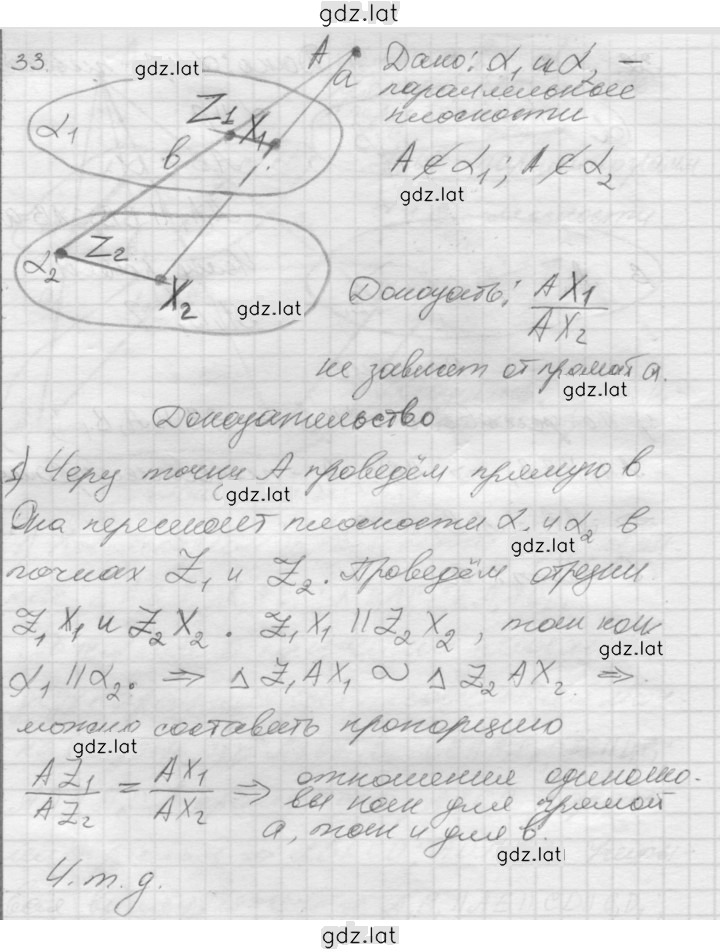 gdz.lat
33.
gdz.lat
A
a
Дано: α₁ и α₂ —
параллельные
плоскости
Z₁
X₁
α₁
в
A ∉ α₁; A ∉ α₂
gdz.lat
α₂
Z₂
X₂
gdz.lat
Доказать: AX₁/AX₂
не зависит от прямой а.
gdz.lat
Доказательство
1) Через точки А проведём прямую в
gdz.lat
Она пересекает плоскости α₁ и α₂ в
gdz.lat
точках Z₁ и Z₂. Проведём отрезки
Z₁X₁ и Z₂X₂. Z₁X₁ || Z₂X₂, так как
gdz.lat
α₁ || α₂. ⇒ Δ Z₁AX₁ ∾ Δ Z₂AX₂ ⇒
можно составить пропорцию
gdz.lat
AZ₁/AZ₂ = AX₁/AX₂ ⇒ отношения одинако-
вы как для прямой
а, так и для в.
gdz.lat
Ч.т.д.
gdz.lat